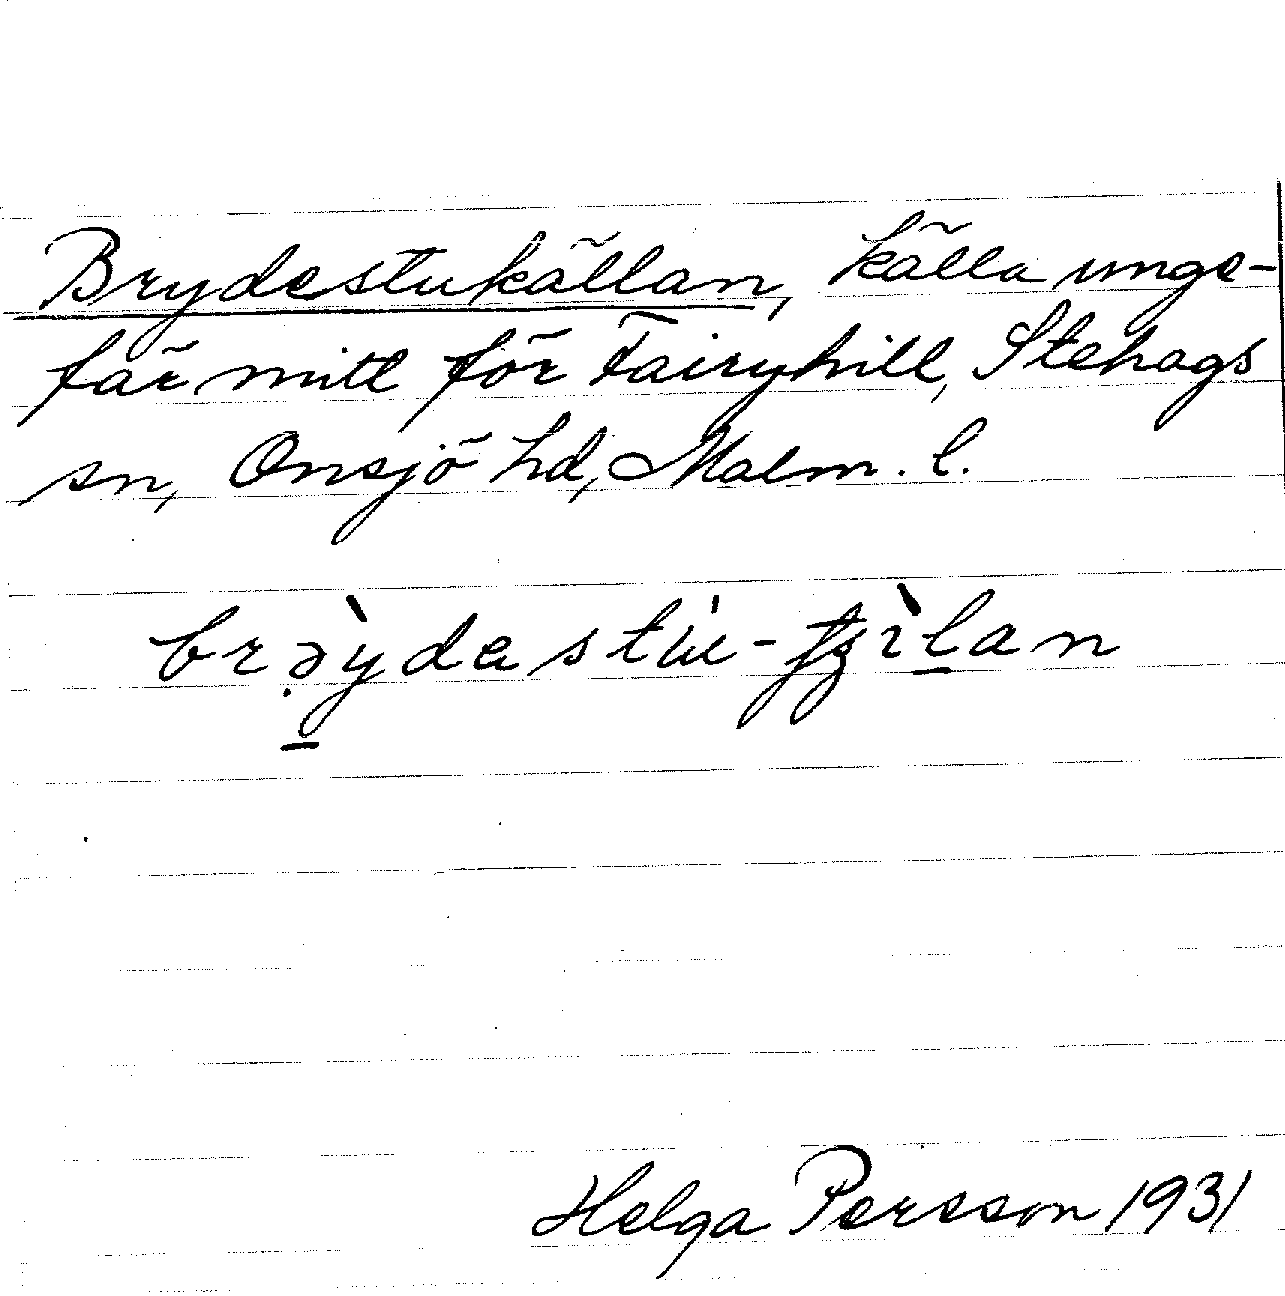 Brydestukällan, källa unge-
fär mitt för Fairyhill, Stehags
sn, Onsjö hd, Malm. l.
Helga Persson 1931